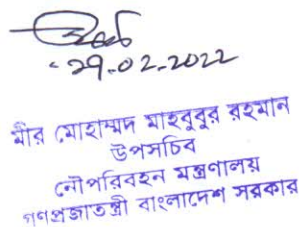 ২৭.০২.২০২২
মীর মোহাম্মদ মাহবুবুর রহমান
উপসচিব
নৌপরিবহন মন্ত্রণালয়
গণপ্রজাতন্ত্রী বাংলাদেশ সরকার